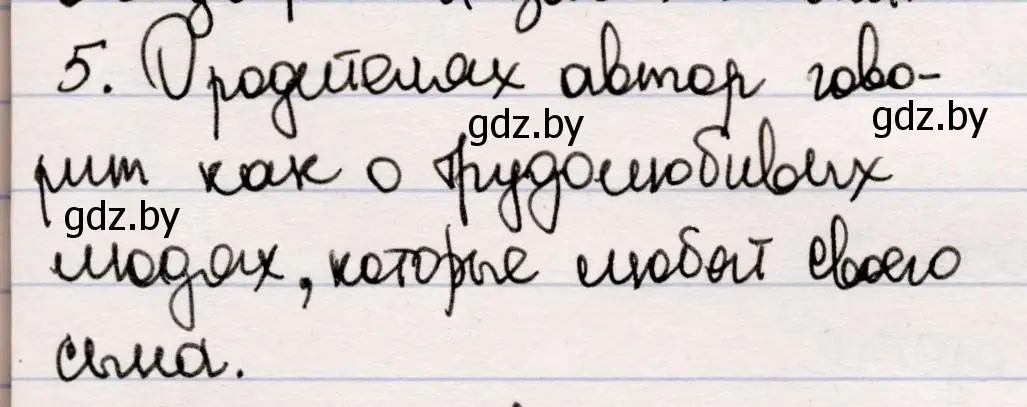 5. О родителях автор гово-
gdz.by
gdz.by
рит как о трудолюбивых
gdz.by
людях, которые любят своего
сына.